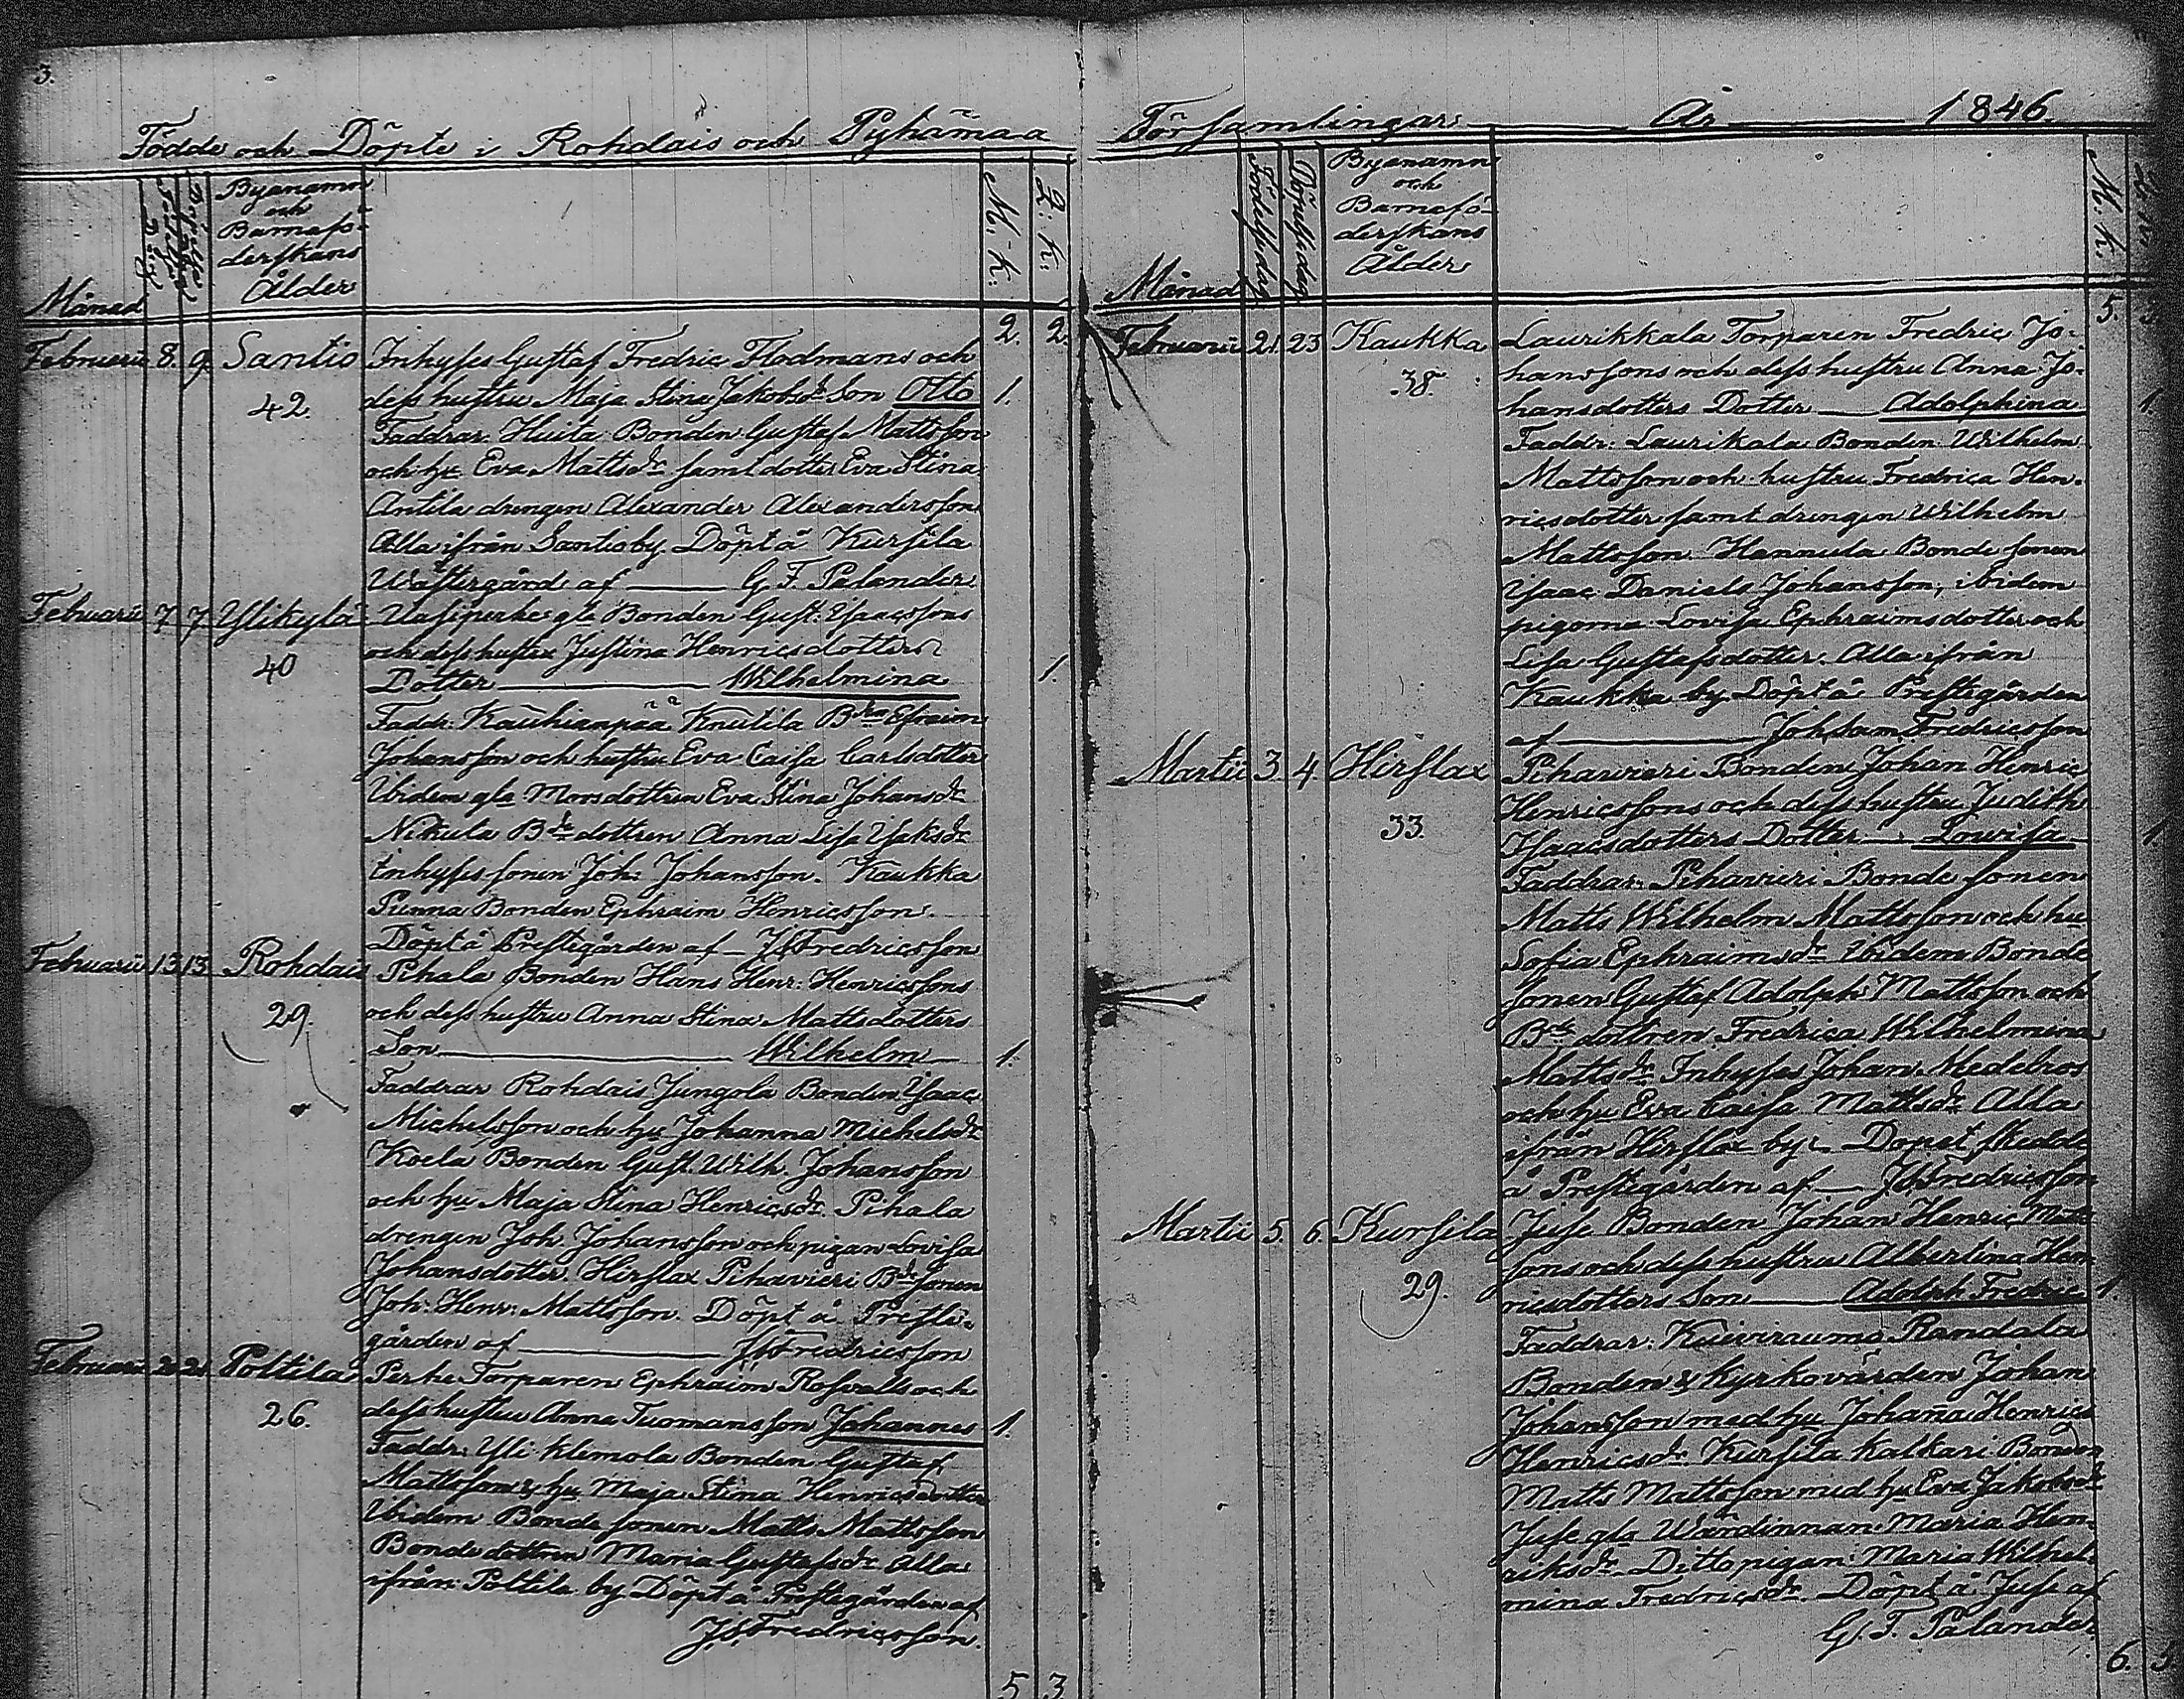 3.
Födde och Döpte i Rohdais och Pyhämaa
Månad
Födelse Dag
Döpelse dag
Byanamn
och
Barnafö-
derskans
Ålder
M. k:
Q: k:
2. 2.
Februarii 8. 9. Santio
42.
Inhyses Gustaf Fredric Flodmans och
dess hustru Maja Stina Jakobsdr Son Otto 1.
Faddrar. Huita Bonden Gustaf Mattsson
och hu Eva Mattsdr samt dotter Eva Stina
Antila drengen Alexander Alexandersson
Alla ifrån Santio by. Döpt å Kursila
Wästergård af — G. F. Palander
Februarii 7 7 Ylikylä
40
Uusiperhe gla Bonden Gust: Ysaacssons
och dess hustru Justina Henricsdotters
Dotter — Wilhelmina 1.
Faddr: Kauhianpää Knutila Bden Efraim
Johansson och hustru Eva Caisa Carlsdotter
Ibidem gla Morsdottren Eva Stina Johansdr
Nikula Bde dottren Anna Lisa Ysaksdr
Inhyses sonen Joh: Johansson. Kaukka
Punna Bonden Ephraim Henricsson.
Döpt å Prestegården af — Js Fredricsson
Februarii 13 13 Rohdais
29.
Pihala Bonden Hans Henr: Henricssons
och dess hustru Anna Stina Mattsdotters
Son — Wilhelm 1.
Faddrar Rohdais Jungola Bonden Ysaac
Michelsson och hu Johanna Michelsdr
Koela Bonden Gust. Wilh. Johansson
och hu Maja Stina Henricsdr. Pihala
drengen Joh Johansson och pigan Lovisa
Johansdotter. Hirslax Pihavieri Bde sonen
Joh: Henr: Mattsson. Döpt å Preste-
gården af — Js Fredricsson
Februarii 20 21 Poltila
26.
Perhe Torparen Ephraim Rosvalls och
dess hustru Anna Tuomans son Johannes 1.
Faddr: Yli klemola Bonden Gustaf
Mattsson & hu Maja Stina Henricsdotter
Ibidem Bonde sonen Matts Mattsson
Bonde dottren Maria Gustafsdr Alla
ifrån Poltila by Döpt å Prestegården af
Js Fredricsson.
5 3
Församlingar — År — 1846.
Månad
Födelsedag
Döpelsedag
Byanamn
och
Barnafö-
derskans
Ålder
M. k.
5. 3
Februarii 21 23 Kaukka
38.
Laurikkala Torparen Fredric Jo-
hanssons och dess hustru Anna Jo-
hansdotters Dotter — Adolphina 1.
Faddr: Laurikala Bonden Wilhelm
Mattsson och hustru Fredrica Hen-
ricsdotter samt drengen Wilhelm
Mattsson. Hannula Bonde sonen
Ysaac Daniels Johansson, ibidem
pigorna Lovisa Ephraimsdotter och
Lisa Gustafsdotter. Alla ifrån
Kaukka by Döpt å Prestegården
af — Joh: Fredricsson
Martii 3 4 Hirslax
33
Pihavieri Bonden Johan Henric
Henricssons och dess hustru Judith
Ysaacsdotters Dotter — Lowisa 1
Faddrar. Pihavieri Bonde sonen
Matts Wilhelm Mattsson och hu
Sofia Ephraimsdr Ibidem Bonde
sonen Gustaf Adolph Mattsson och
Bde dottren Fredrica Wilhelmina
Mattsdr. Inhyses Johan Medelbros
och hu Eva Caisa Mattsdr Alla
ifrån Hirslax by. Dopet skedde
å Prestegården af — Js Fredricsson
Martii 5. 6. Kursila
29.
Juse Bonden Johan Henric Matts
sons och dess hustru Albertina Hen
ricsdotters Son — Adolph Fredric 1.
Faddrar: Kuiviraumo Randala
Bonden & Kyrkovärden Johan
Johansson med hu Johanna Henrica
Henricsdr Kursila Kalkari Bonden
Matts Mattsson med hu Eva Jakobsdr
Juse gla Wärdinnan Maria Hen-
riksdr. Ditto pigan Maria Wilhel-
mina Fredricsdr. Döpt å Juse af
G. F. Palander
6. 5